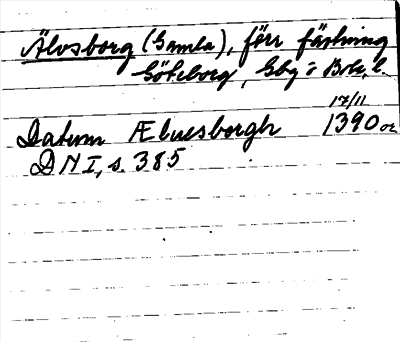 Älvsborg (Gamla), förr fästning
Göteborg, Gbg o Boh. l.
17/11
Datum Æluesborgh 1390 or.
DN I, s. 385